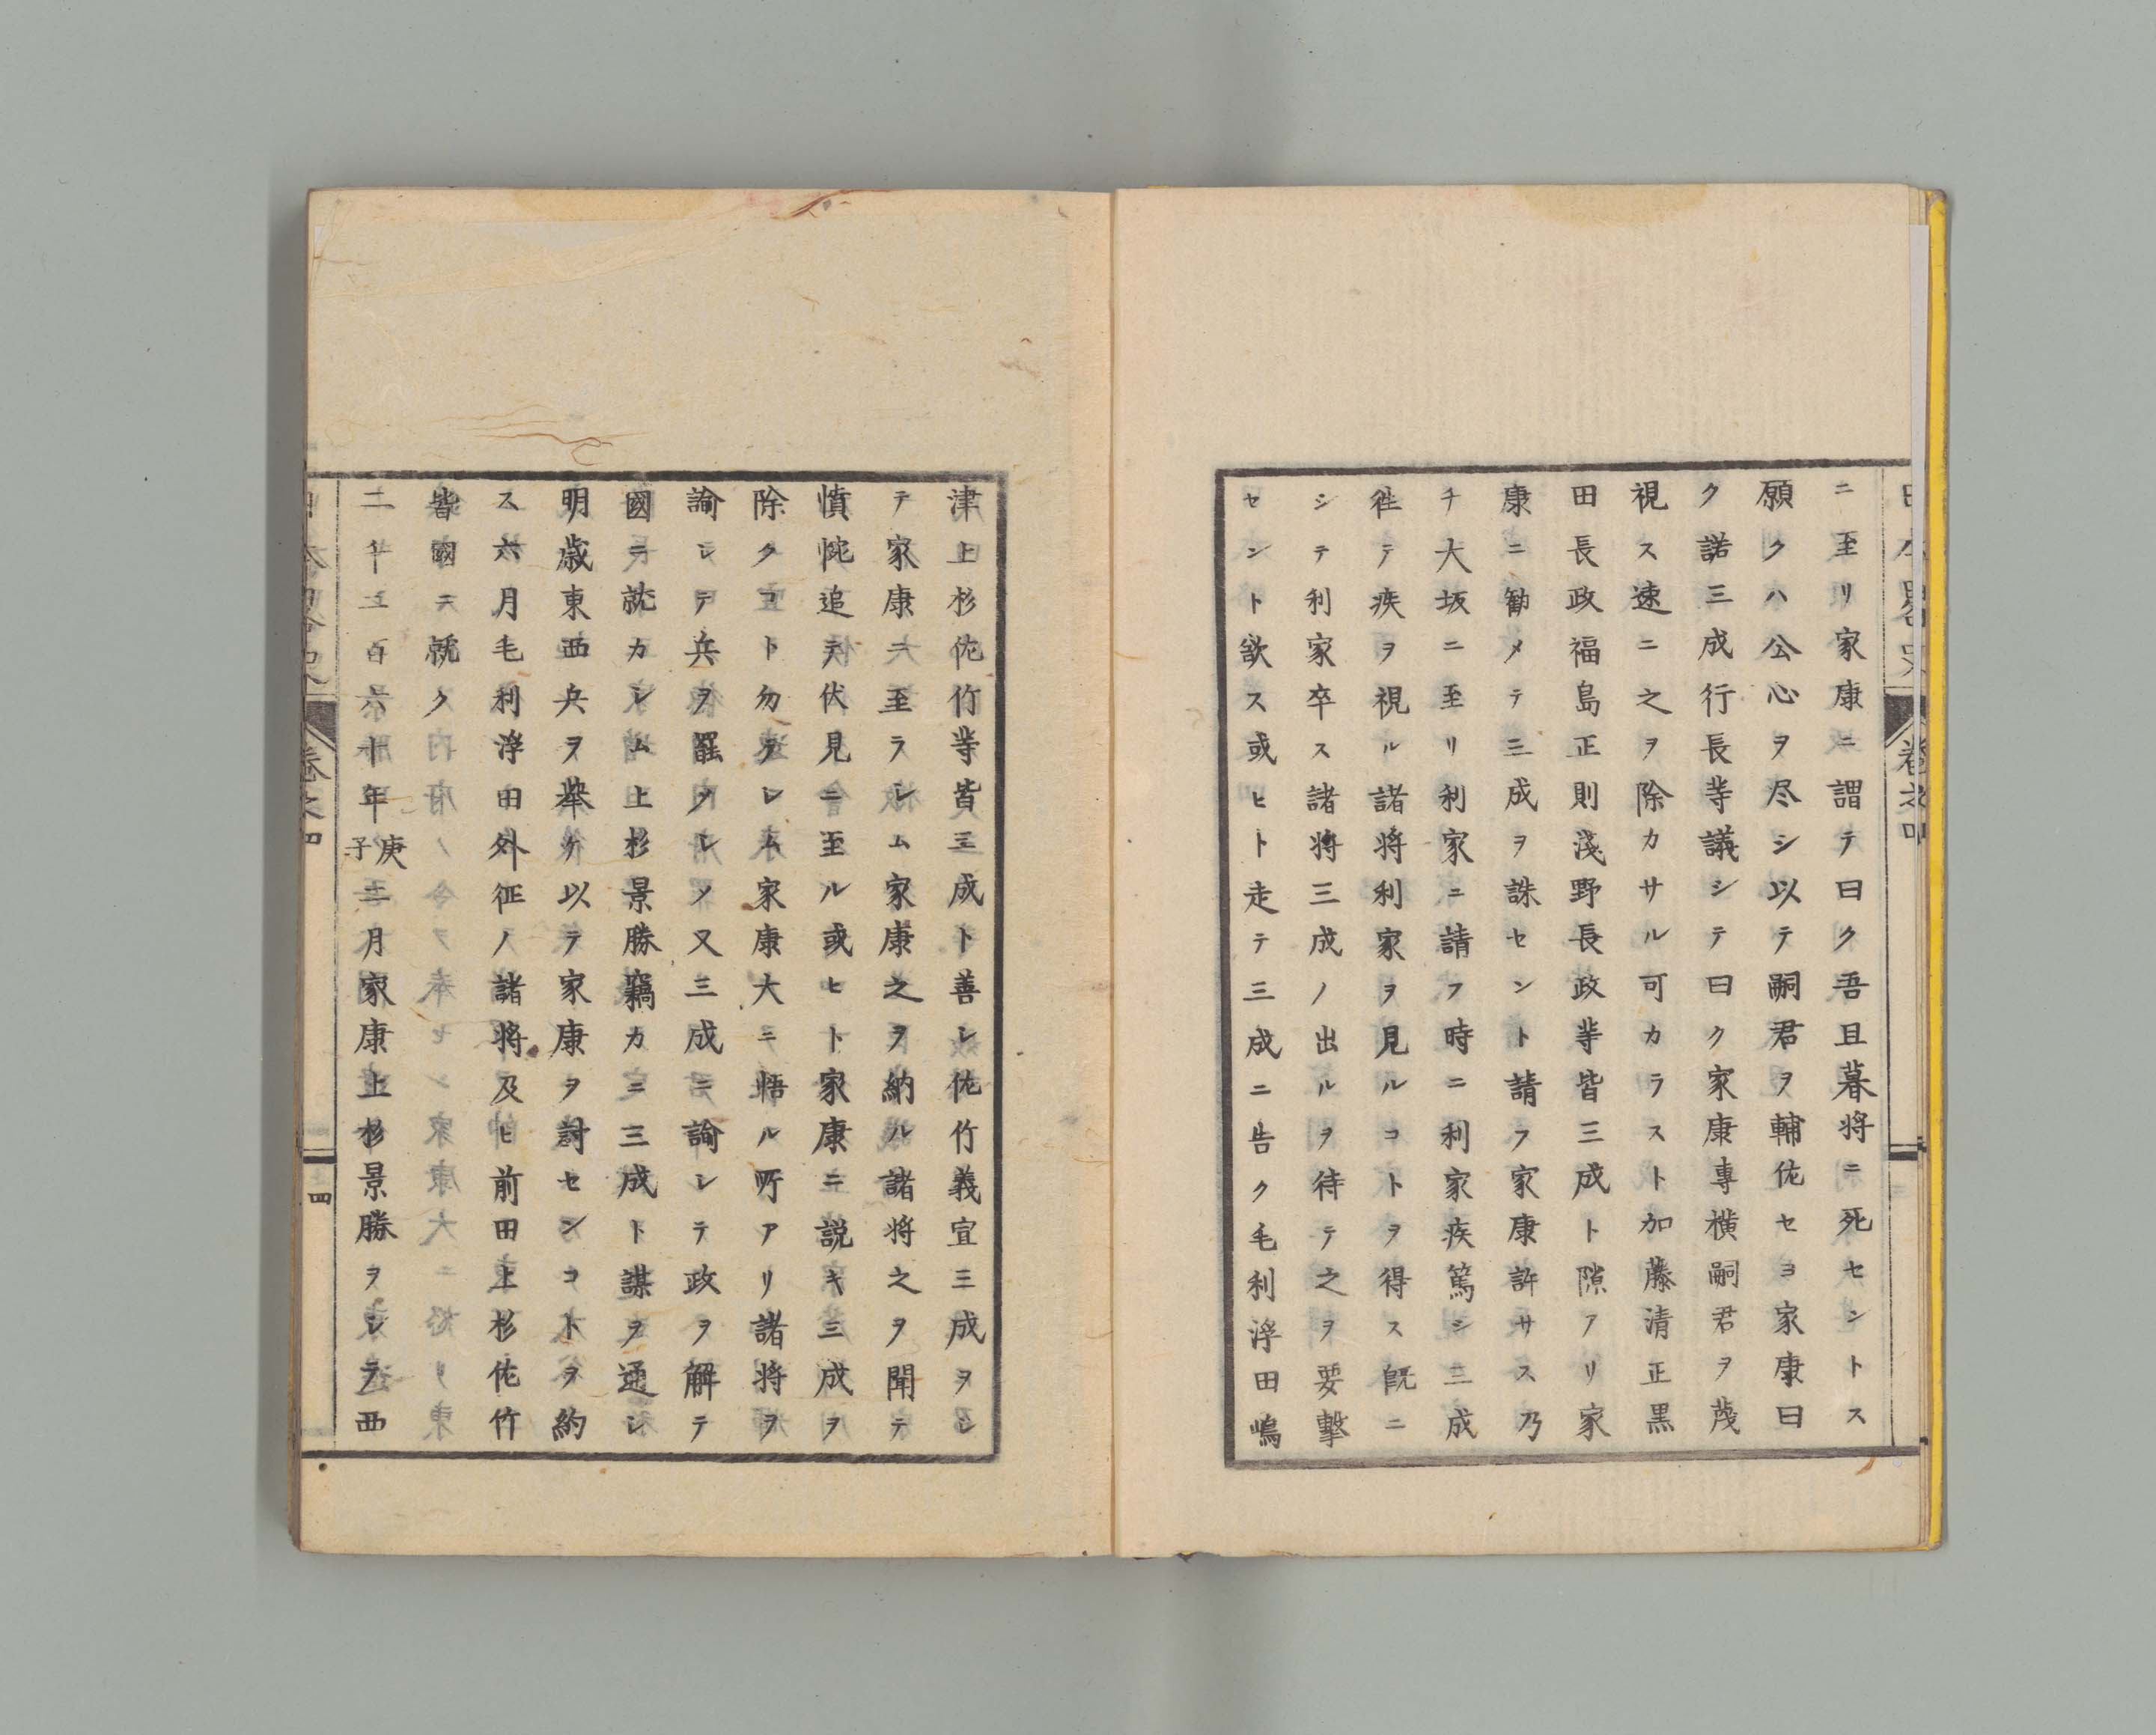 ニ至リ家康ニ謂テ曰ク吾且暮将ニ死セントス
願クハ公心ヲ尽シ以テ嗣君ヲ輔佐セヨ家康曰
ク諾三成行長等議シテ曰ク家康專横嗣君ヲ蔑
視ス速ニ之ヲ除カサル可カラスト加藤清正黒
田長政福島正則淺野長政等皆三成ト隙アリ家
康ニ勧メテ三成ヲ誅セント請フ家康許サス乃
チ大坂ニ至リ利家ニ請フ時ニ利家疾篤シ三成
徃テ疾ヲ視ル諸将利家ヲ見ルコトヲ得ス既ニ
シテ利家卒ス諸将三成ノ出ルヲ待テ之ヲ要撃
セント欲ス或ヒト走テ三成ニ告ク毛利浮田嶋
津上杉佐竹等皆三成ト善シ佐竹義宣三成ヲシ
テ家康ニ至ラシム家康之ヲ納ル諸将之ヲ聞テ
憤惋追テ伏見ニ至ル或ヒト家康ニ説キ三成ヲ
除クコト勿ラシム家康大ニ悟ル所アリ諸将ヲ
諭シテ兵ヲ罷メシメ又三成ニ諭シテ政ヲ解テ
國ニ就カシム上杉景勝竊カニ三成ト謀ヲ通シ
明歳東西兵ヲ挙ケ以テ家康ヲ討センコトヲ約
ス六月毛利浮田外征ノ諸将及ヒ前田上杉佐竹
皆國ニ就ク
二千二百六十年庚子三月家康上杉景勝ヲシテ西
日本畧史 巻之四
四